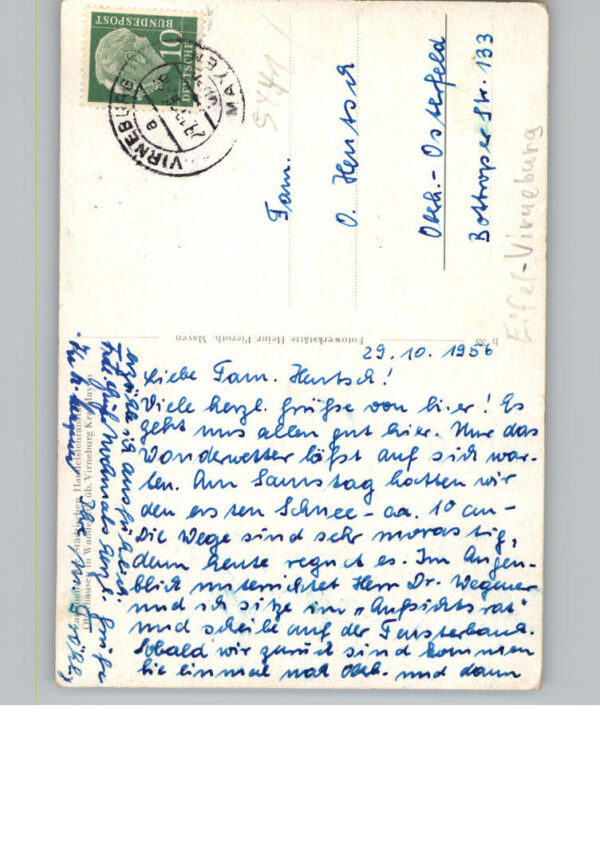 DEUTSCHE
BUNDESPOST
10
VIRNEBURG
MAYEN
a
5441
Fam.
O. Hentsch
Obh.-Osterfeld
Bottroper Str. 133
Eifel-Virneburg
Fotowerkstätte Heinz Pieroth, Mayen
29.10.1956
Liebe Fam. Hentsch!
Viele herzl. Grüße von hier! Es
geht uns allen gut hier. Nur das
Wanderwetter läßt auf sich war-
ten. Am Samstag hatten wir
den ersten Schnee - ca. 10 cm -
Die Wege sind sehr morastig,
denn heute regnet es. Im Augen-
blick unterrichtet Herr Dr. Wegener
und ich sitze im "Aufsichtsrat"
und schreibe auf der Fensterbank.
Sobald wir zurück sind kommen
Sie einmal nach Obh. und dann
erzähle ich ausführlich.
Nochmals herzl. Grüße
Ihr
üb. Virneburg Krs. Mayen